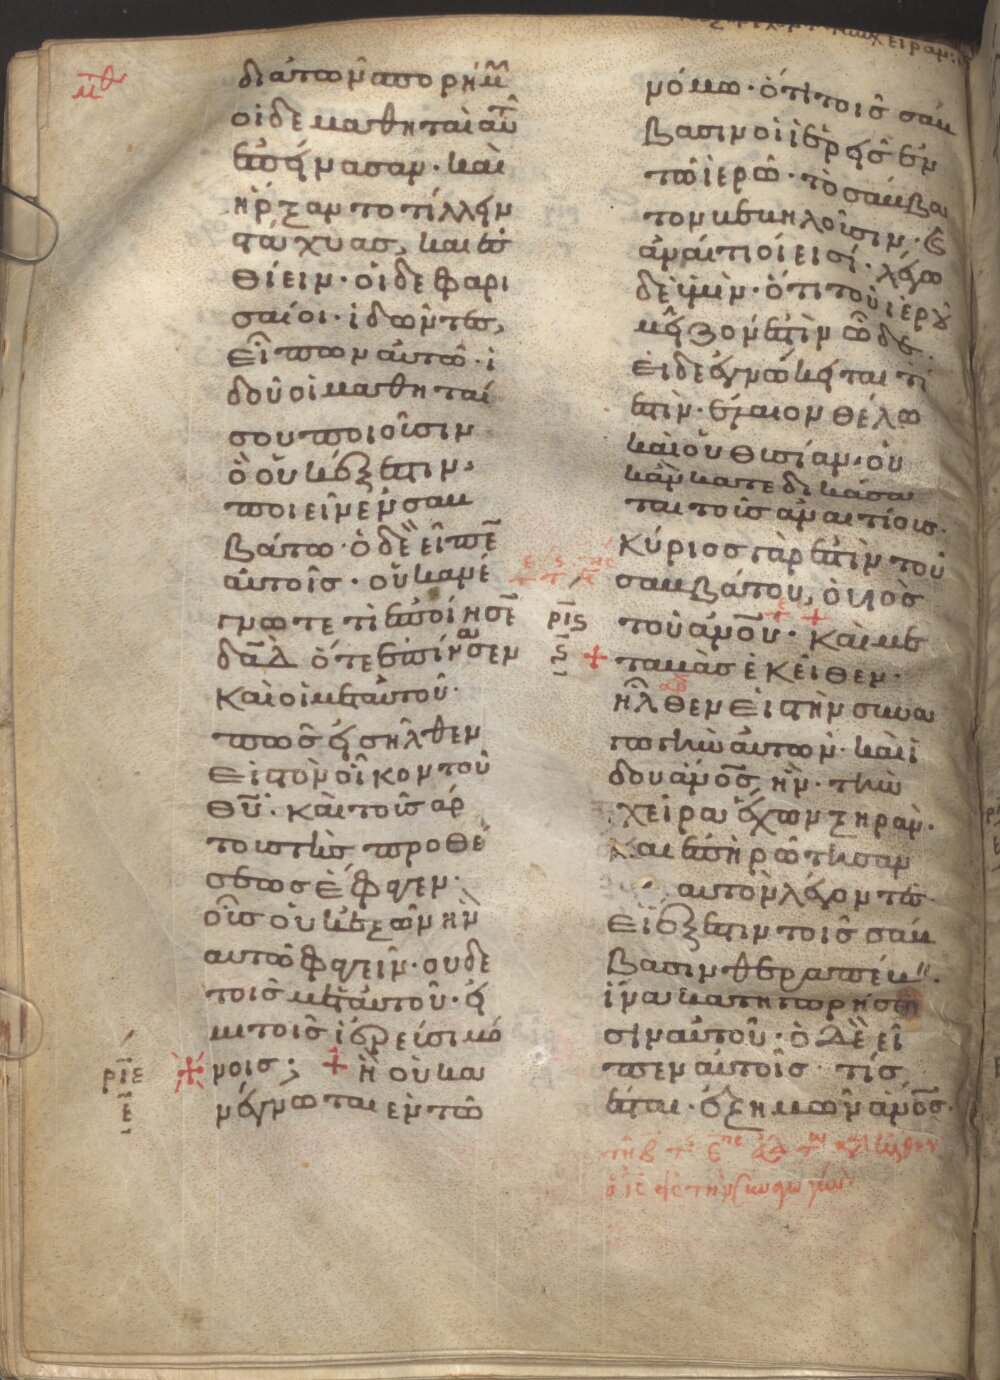 διὰ τῶν σπορίμ
οἱ δὲ μαθηταὶ αὐτ
ἐπείνασαν· καὶ
ἤρξαντο τίλλειν
στάχυας, καὶ ἐσ
θίειν· οἱ δὲ φαρι
σαῖοι· ἰδόντες,
εἶπον αὐτῶ· ἰ
δοὺ οἱ μαθηταί
σου ποιοῦσιν
ὃ οὐκ ἔξεστιν,
ποιεῖν ἐν σαμ
βάτω· ὁ δὲ εἶπε
αὐτοῖς· οὐκ ἀνέ
γνωτε τί ἐποίησε
δᾱδ ὅτε ἐπείνασεν
καὶ οἱ μετ αὐτοῦ·
πῶς εἰσῆλθεν
εἰς τὸν οἶκον τοῦ
θῡ· καὶ τοὺς ἄρ
τους τῆς προθέ
σεως ἔφαγεν·
οὓς οὐκ ἐξὸν ἦν
αὐτῶ φαγεῖν· οὐδὲ
τοῖς μετ αὐτοῦ· εἰ
μὴ τοῖς ἱερεῦσι μό
ρῑε
ε̄
νοις; ἢ οὐκ ἀ
νέγνωται ἐν τῶ
νόμω· ὅτι τοῖς σάμ
βασιν οἱ ἱερεῖς ἐν
τῶ ἱερῶ· τὸ σάμβα
τον βεβηλοῦσιν· καὶ
ἀναίτιοί εἰσί· λέγω
δὲ ὑμῖν· ὅτι τοῦ ἱεροῦ
μεῖζον ἐστὶν ὧδε·
εἰ δὲ ἐγνώκειται τί
ἐστὶν· ἔλεον θέλω
καὶ οὐ θυσίαν· οὐ
κἂν κατεδικάσα
ται τοὺς ἀναιτίους·
κύριος γάρ ἐστὶν τοῦ
σαμβάτου, ὁ υἱὸς
ρῑς
ς̄
τοῦ ἀν̄ου· καὶ με
ταβὰς ἐκεῖθεν·
ἦλθεν εἰς τὴν συνα
γωγὴν αὐτῶν· καὶ ἰ
δοὺ ἄν̄ος, ἦν· τὴν
χεῖρα ἔχων ξηράν·
καὶ ἐπηρώτησαν
αὐτὸν λέγοντες·
εἰ ἔξεστιν τοῖς σάμ
βασιν θεραπεύειν·
ἵνα κατηγορήσω
σιν αὐτοῦ· ὁ δὲ εἶ
πεν αὐτοῖς· τίς
ἔσται· ἐξ ὑμῶν ἄν̄ος·